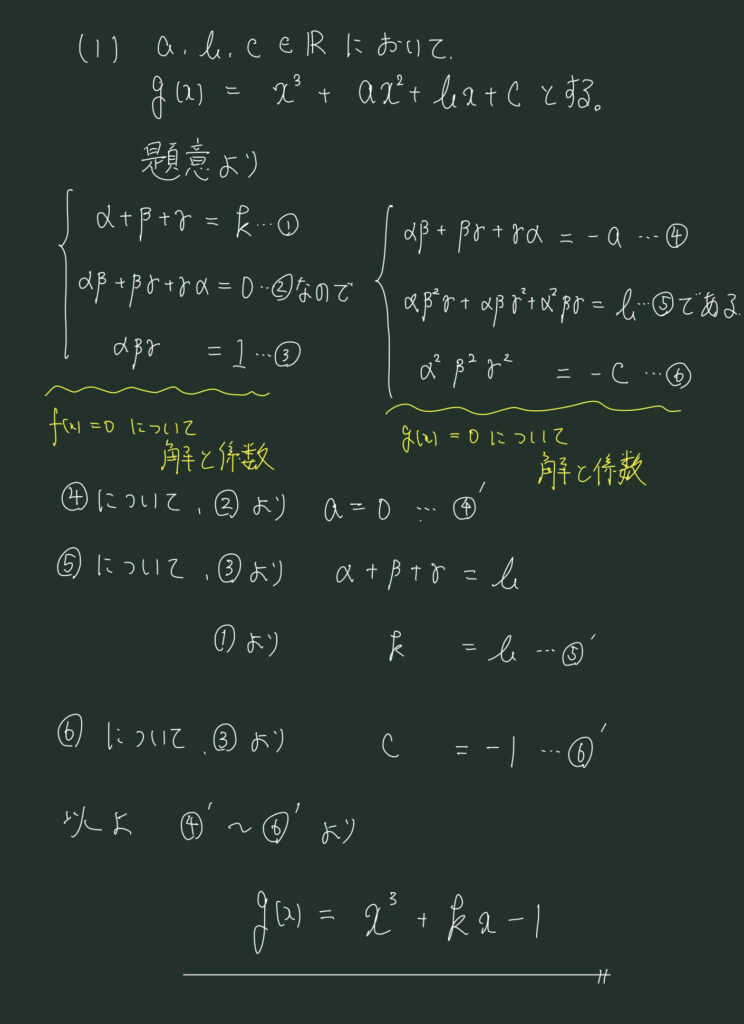 (1) a, b, c ∈ ℝ において、
g(x) = x³ + ax² + bx + c とする。
題意より
α+β+γ = k … ①
αβ+βγ+γα = 0 … ② なので
αβγ = 1 … ③
f(x) = 0 について
解と係数
αβ+βγ+γα = -a … ④
αβ²γ+αβγ²+α²βγ = b … ⑤ である
α²β²γ² = -c … ⑥
g(x) = 0 について
解と係数
④について、②より a = 0 … ④'
⑤について、③より α+β+γ = b
①より k = b … ⑤'
⑥について、③より c = -1 … ⑥'
以上 ④' ~ ⑥' より
g(x) = x³ + kx - 1